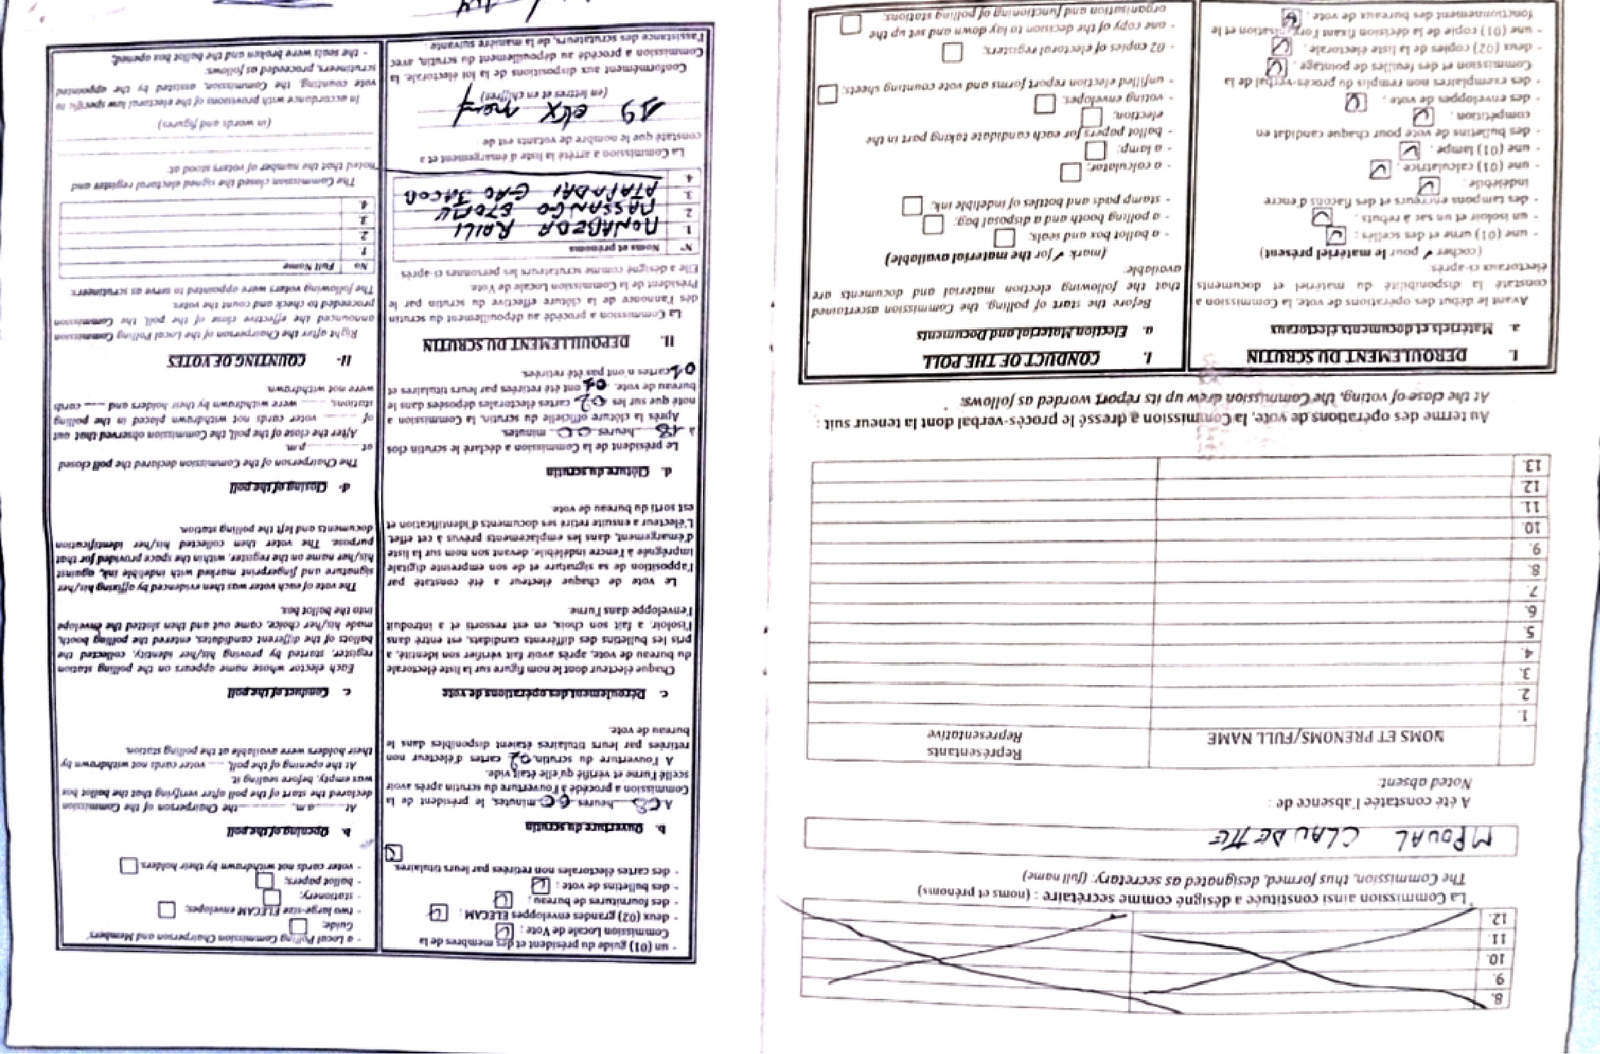 8.
9.
10.
11.
12.
La Commission ainsi constituée a désigné comme secrétaire : (noms et prénoms)
The Commission, thus formed, designated as secretary: (full name)
MPOUAL CLAUDETTE
A été constatée l'absence de :
Noted absent:
NOMS ET PRENOMS/FULL NAME
Représentants
Representative
1.
2.
3.
4.
5.
6.
7.
8.
9.
10.
11.
12
13.
Au terme des opérations de vote, la Commission a dressé le procès-verbal dont la teneur suit :
At the close of voting, the Commission drew up its report worded as follows:
I. DEROULEMENT DU SCRUTIN
a. Matériels et documents électoraux
Avant le début des opérations de vote, la Commission a
constaté la disponibilité du matériel et documents
électoraux ci-après:
(cocher ✓ pour le matériel présent)
- une (01) urne et des scellés :
- un isoloir et un sac à rebuts :
- des tampons encreurs et des flacons d'encre
indélébile :
- une (01) calculatrice :
- une (01) lampe :
- des bulletins de vote pour chaque candidat en
compétition :
- des enveloppes de vote :
- des exemplaires non remplis du procès-verbal de la
Commission et des feuilles de pointage :
- deux (02) copies de la liste électorale :
- une (01) copie de la décision fixant l'organisation et le
fonctionnement des bureaux de vote :
I. CONDUCT OF THE POLL
a. Election Material and Documents
Before the start of polling, the Commission ascertained
that the following election material and documents are
available:
(mark ✓ for the material available)
- a ballot box and seals;
- a polling booth and a disposal bag;
- stamp pads and bottles of indelible ink;
- a calculator;
- a lamp;
- ballot papers for each candidate taking part in the
election;
- voting envelopes;
- unfilled election report forms and vote counting sheets;
- 02 copies of electoral registers;
- one copy of the decision to lay down and set up the
organisation and functioning of polling stations;
- un (01) guide du président et des membres de la
Commission Locale de Vote :
- deux (02) grandes enveloppes ELECAM :
- des fournitures de bureau :
- des bulletins de vote :
- des cartes électorales non retirées par leurs titulaires.
b. Ouverture du scrutin
A 08 heures 00 minutes, le président de la
Commission a procédé à l'ouverture du scrutin après avoir
scellé l'urne et vérifié qu'elle était vide.
A l'ouverture du scrutin, 02 cartes d'électeur non
retirées par leurs titulaires étaient disponibles dans le
bureau de vote.
c. Déroulement des opérations de vote
Chaque électeur dont le nom figure sur la liste électorale
du bureau de vote, après avoir fait vérifier son identité, a
pris les bulletins des différents candidats, est entré dans
l'isoloir, a fait son choix, en est ressorti et a introduit
l'enveloppe dans l'urne.
Le vote de chaque électeur a été constaté par
l'apposition de sa signature et de son empreinte digitale
imprégnée à l'encre indélébile, devant son nom sur la liste
d'émargement, dans les emplacements prévus à cet effet.
L'électeur a ensuite retiré ses documents d'identification et
est sorti du bureau de vote.
d. Clôture du scrutin
Le président de la Commission a déclaré le scrutin clos
à 18 heures 00 minutes.
Après la clôture officielle du scrutin, la Commission a
noté que sur les 02 cartes électorales déposées dans le
bureau de vote, 01 ont été retirées par leurs titulaires et
01 cartes n'ont pas été retirées.
II. DEPOUILLEMENT DU SCRUTIN
La Commission a procédé au dépouillement du scrutin
dès l'annonce de la clôture effective du scrutin par le
Président de la Commission Locale de Vote.
Elle a désigné comme scrutateurs les personnes ci-après
N° Noms et prénoms
1.
2. MASSANGO ETOMU
3. ATAPADAI GAO JACOB
4.
La Commission a arrêté la liste d'émargement et a
constaté que le nombre de votants est de
19 dix neuf
(en lettres et en chiffres)
Conformément aux dispositions de la loi électorale, la
Commission a procédé au dépouillement du scrutin, avec
l'assistance des scrutateurs, de la manière suivante :
- a Local Polling Commission Chairperson and Members'
Guide;
- two large-size ELECAM envelopes;
- stationery;
- ballot papers;
- voter cards not withdrawn by their holders.
b. Opening of the poll
At ......a.m. .......... the Chairperson of the Commission
declared the start of the poll after verifying that the ballot box
was empty, before sealing it.
At the opening of the poll, ..... voter cards not withdrawn by
their holders were available at the polling station.
c. Conduct of the poll
Each elector whose name appears on the polling station
register, started by proving his/her identity, collected the
ballots of the different candidates, entered the polling booth,
made his/her choice, came out and then slotted the envelope
into the ballot box.
The vote of each voter was then evidenced by affixing his/her
signature and fingerprint marked with indelible ink, against
his/her name on the register, within the space provided for that
purpose. The voter then collected his/her identification
documents and left the polling station.
d- Closing of the poll
The Chairperson of the Commission declared the poll closed
at .............. p.m.
After the close of the poll, the Commission observed that out
of ........ voter cards not withdrawn placed in the polling
stations, ....... were withdrawn by their holders and ...... cards
were not withdrawn.
II- COUNTING OF VOTES
Right after the Chairperson of the Local Polling Commission
announced the effective close of the poll, the Commission
proceeded to check and count the votes.
The following voters were appointed to serve as scrutineers:
No Full Name
1
2.
3.
4.
The Commission closed the signed electoral register and
noted that the number of voters stood at:
(in words and figures)
In accordance with provisions of the electoral law specific to
vote counting, the Commission, assisted by the appointed
scrutineers, proceeded as follows:
- the seals were broken and the ballot box opened,